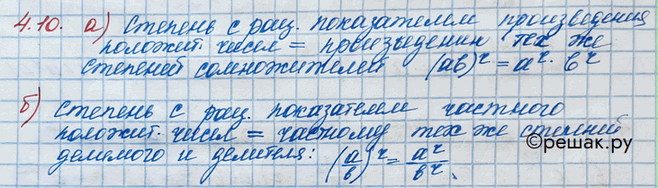 4.10. а) Степень с рац. показателем произведения
положит. чисел = произведению тех же
степеней сомножителей (ab)^r = a^r · b^r
б) Степень с рац. показателем частного
положит. чисел = частному тех же степеней
делимого и делителя: (a/b)^r = a^r/b^r.
©решак.ру